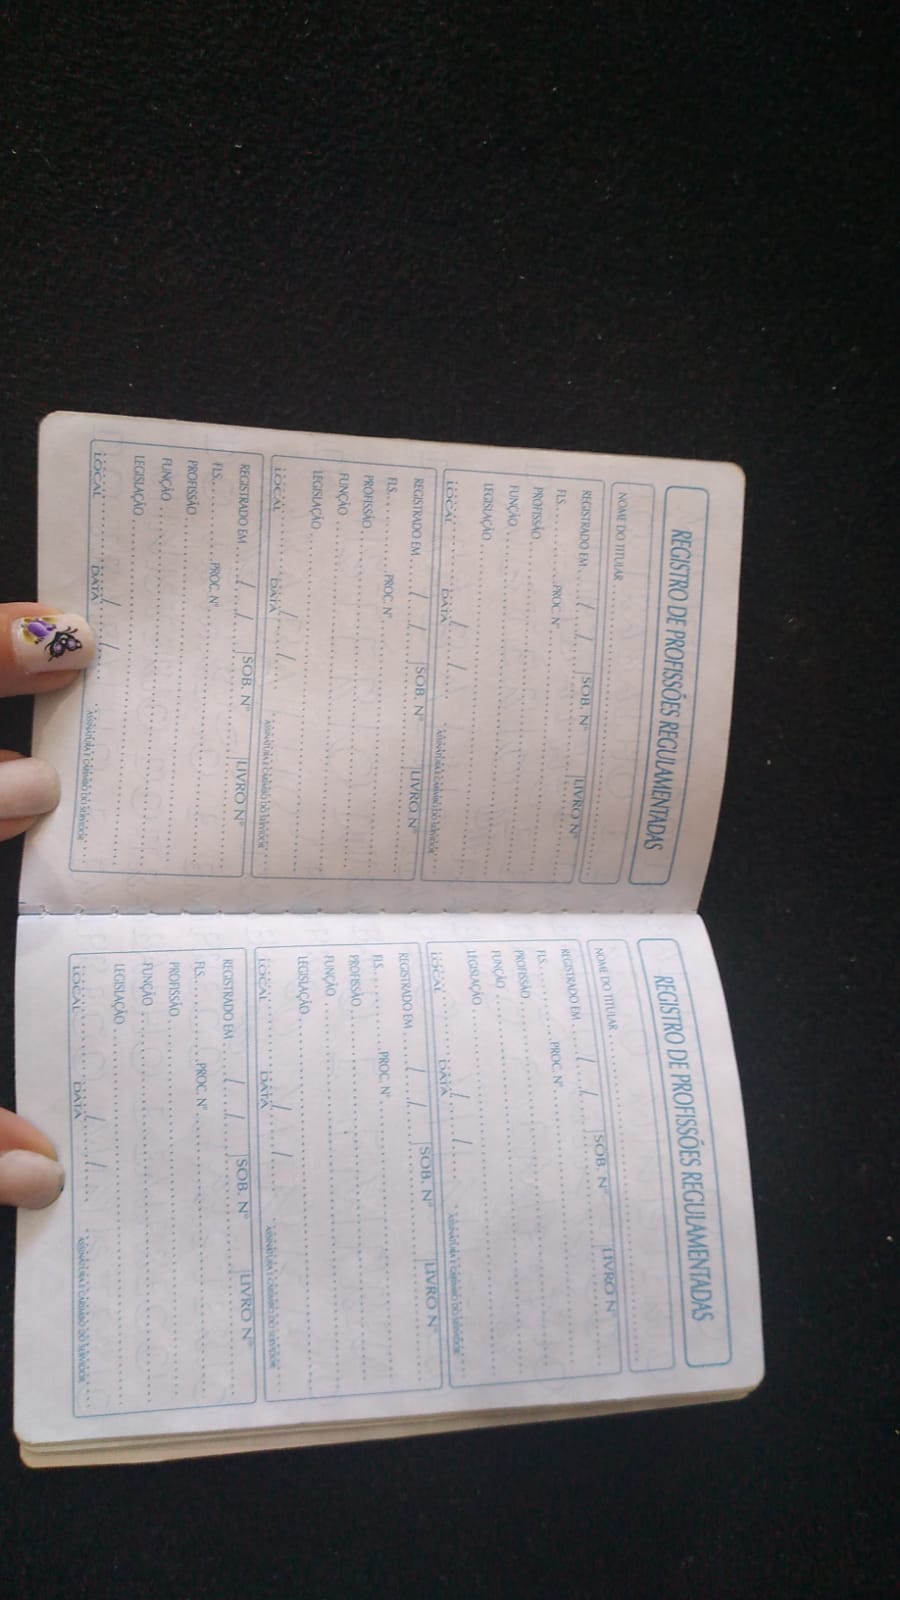 REGISTRO DE PROFISSÕES REGULAMENTADAS
NOME DO TITULAR
REGISTRADO EM / / SOB. Nº LIVRO Nº
FLS. PROC. Nº
PROFISSÃO
FUNÇÃO
LEGISLAÇÃO
LOCAL DATA / / ASSINATURA E CARIMBO DO SERVIDOR
REGISTRADO EM / / SOB. Nº LIVRO Nº
FLS. PROC. Nº
PROFISSÃO
FUNÇÃO
LEGISLAÇÃO
LOCAL DATA / / ASSINATURA E CARIMBO DO SERVIDOR
REGISTRADO EM / / SOB. Nº LIVRO Nº
FLS. PROC. Nº
PROFISSÃO
FUNÇÃO
LEGISLAÇÃO
LOCAL DATA / / ASSINATURA E CARIMBO DO SERVIDOR
REGISTRO DE PROFISSÕES REGULAMENTADAS
NOME DO TITULAR
REGISTRADO EM / / SOB. Nº LIVRO Nº
FLS. PROC. Nº
PROFISSÃO
FUNÇÃO
LEGISLAÇÃO
LOCAL DATA / / ASSINATURA E CARIMBO DO SERVIDOR
REGISTRADO EM / / SOB. Nº LIVRO Nº
FLS. PROC. Nº
PROFISSÃO
FUNÇÃO
LEGISLAÇÃO
LOCAL DATA / / ASSINATURA E CARIMBO DO SERVIDOR
REGISTRADO EM / / SOB. Nº LIVRO Nº
FLS. PROC. Nº
PROFISSÃO
FUNÇÃO
LEGISLAÇÃO
LOCAL DATA / / ASSINATURA E CARIMBO DO SERVIDOR